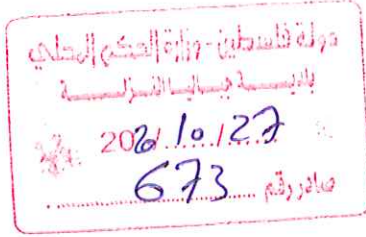 دولة فلسطين - وزارة الحكم المحلي
بلديــة جباليا النزلــة
/10/27
صادر رقم 673